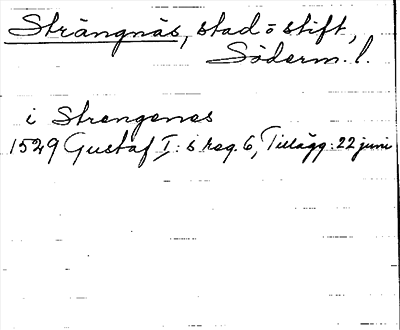 Strängnäs, stad o stift,
Söderm. l.
i Strengenes
1529 Gustaf I:s reg. 6, Tillägg: 22 juni